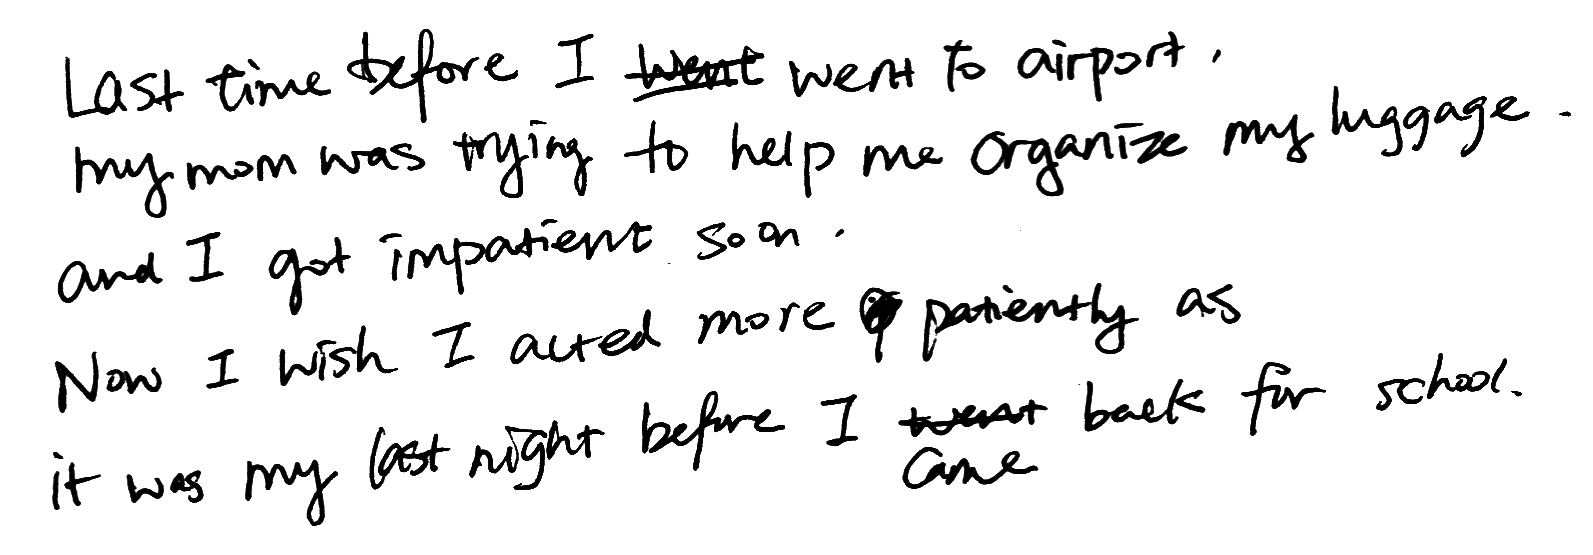 Last time before I went to airport,
my mom was trying to help me organize my luggage.
and I got impatient soon.
Now I wish I acted more patiently as
it was my last night before I came back for school.